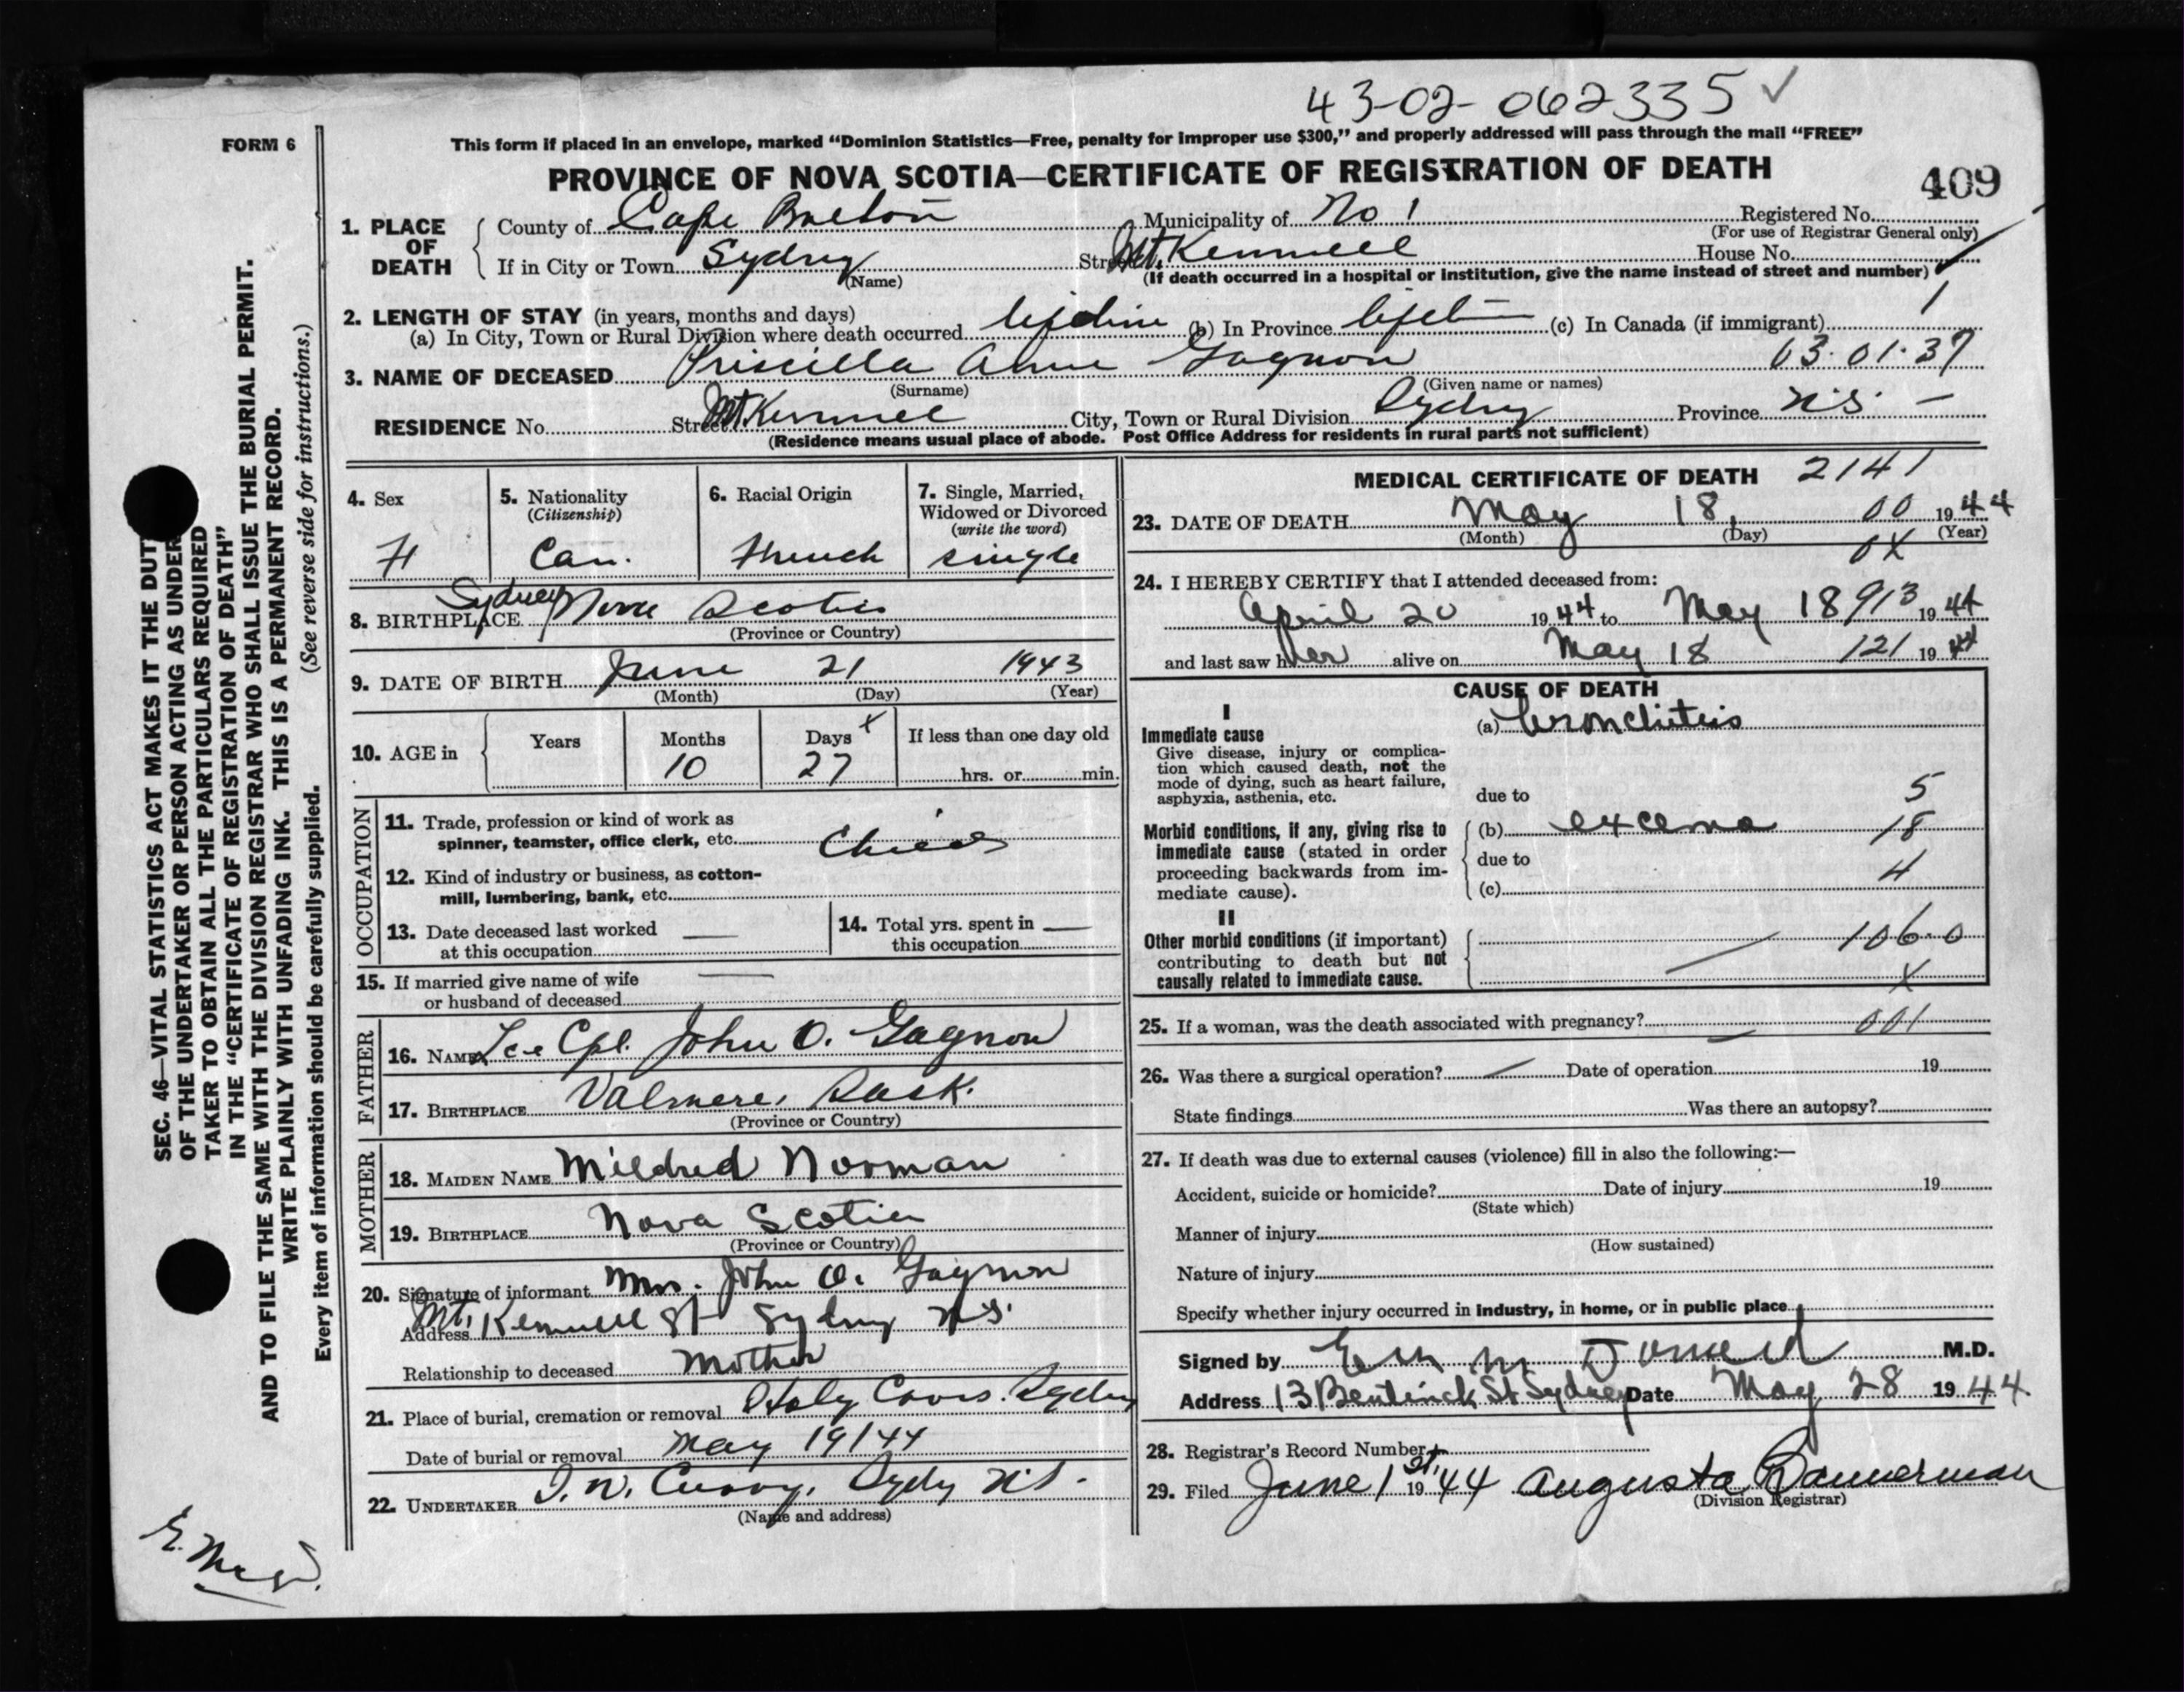 43-02-062335 ✓
FORM 6
This form if placed in an envelope, marked "Dominion Statistics—Free, penalty for improper use $300," and properly addressed will pass through the mail "FREE"
PROVINCE OF NOVA SCOTIA—CERTIFICATE OF REGISTRATION OF DEATH
409
1. PLACE OF DEATH
County of Cape Breton Municipality of No 1 Registered No.
(For use of Registrar General only)
If in City or Town Sydney Street Mt. Kemmel House No.
(Name)
(If death occurred in a hospital or institution, give the name instead of street and number)
2. LENGTH OF STAY (in years, months and days)
1
(a) In City, Town or Rural Division where death occurred lifetime (b) In Province lifet— (c) In Canada (if immigrant)
03·01·37
3. NAME OF DECEASED Priscilla Anne Gagnon
(Surname) (Given name or names)
RESIDENCE No. Street Mt Kemmel City, Town or Rural Division Sydney Province N.S. –
(Residence means usual place of abode. Post Office Address for residents in rural parts not sufficient)
4. Sex
F
5. Nationality
(Citizenship)
Can.
6. Racial Origin
French
7. Single, Married,
Widowed or Divorced
(write the word)
single
8. BIRTHPLACE Sydney Nova Scotia
(Province or Country)
9. DATE OF BIRTH June 21 1943
(Month) (Day) (Year)
10. AGE in
Years
Months
10
Days x
27
If less than one day old
hrs. or min.
OCCUPATION
11. Trade, profession or kind of work as
spinner, teamster, office clerk, etc. Child
12. Kind of industry or business, as cotton-
mill, lumbering, bank, etc.
13. Date deceased last worked —
at this occupation
14. Total yrs. spent in —
this occupation
15. If married give name of wife —
or husband of deceased
FATHER
16. NAME Lce Cpl. John O. Gagnon
17. BIRTHPLACE Valmere, Sask.
(Province or Country)
MOTHER
18. MAIDEN NAME Mildred Norman
19. BIRTHPLACE Nova Scotia
(Province or Country)
20. Signature of informant Mrs. John O. Gagnon
Address Mt. Kemmel St Sydney N.S.
Relationship to deceased Mother
21. Place of burial, cremation or removal Holy Cross. Sydney
Date of burial or removal May 19/44
22. UNDERTAKER Curry, Sydney N.S.
(Name and address)
MEDICAL CERTIFICATE OF DEATH 2141
23. DATE OF DEATH May 18, 00 1944
(Month) (Day) (Year)
0X
24. I HEREBY CERTIFY that I attended deceased from:
April 20 1944 to May 18 913 1944
and last saw her alive on May 18 121 1944
CAUSE OF DEATH
I
Immediate cause
Give disease, injury or complica-
tion which caused death, not the
mode of dying, such as heart failure,
asphyxia, asthenia, etc.
(a) bronchietis
due to
5
Morbid conditions, if any, giving rise to
immediate cause (stated in order
proceeding backwards from im-
mediate cause).
(b) excema 18
due to
4
(c)
II
Other morbid conditions (if important)
contributing to death but not
causally related to immediate cause.
106.0
X
25. If a woman, was the death associated with pregnancy? 001
26. Was there a surgical operation? — Date of operation 19
State findings Was there an autopsy?
27. If death was due to external causes (violence) fill in also the following:—
Accident, suicide or homicide? Date of injury 19
(State which)
Manner of injury
(How sustained)
Nature of injury
Specify whether injury occurred in industry, in home, or in public place
Signed by M.D.
Address 13 Bentinck St Sydney Date May 28 1944.
28. Registrar's Record Number
29. Filed June 1st 1944 Augusta Bannerman
(Division Registrar)
SEC. 46—VITAL STATISTICS ACT MAKES IT THE DUTY
OF THE UNDERTAKER OR PERSON ACTING AS UNDER
TAKER TO OBTAIN ALL THE PARTICULARS REQUIRED
IN THE "CERTIFICATE OF REGISTRATION OF DEATH"
AND TO FILE THE SAME WITH THE DIVISION REGISTRAR WHO SHALL ISSUE THE BURIAL PERMIT.
WRITE PLAINLY WITH UNFADING INK. THIS IS A PERMANENT RECORD.
Every item of information should be carefully supplied. (See reverse side for instructions.)